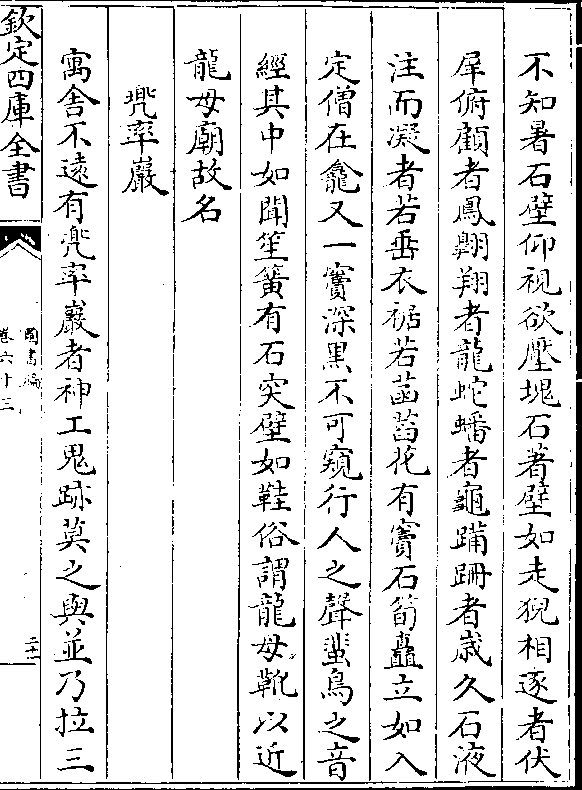 不知暑石壁仰視欲壓塊石著壁如走猊相逐者伏
犀俯顧者鳳翺翔者龍蛇蟠者龜蹒跚者歳久石液
注而凝者若垂衣裾若菡萏花有竇石筍矗立如入
定僧在龕又一竇深黒不可窺行人之聲蜚鳥之音
經其中如聞笙簧有石突壁如鞋俗謂龍母靴以近
龍母廟故名
兠率巖
寓舎不遠有兠率巖者神工鬼跡莫之與並乃拉三
欽定四庫全書
圖書編
卷六十三
二十一